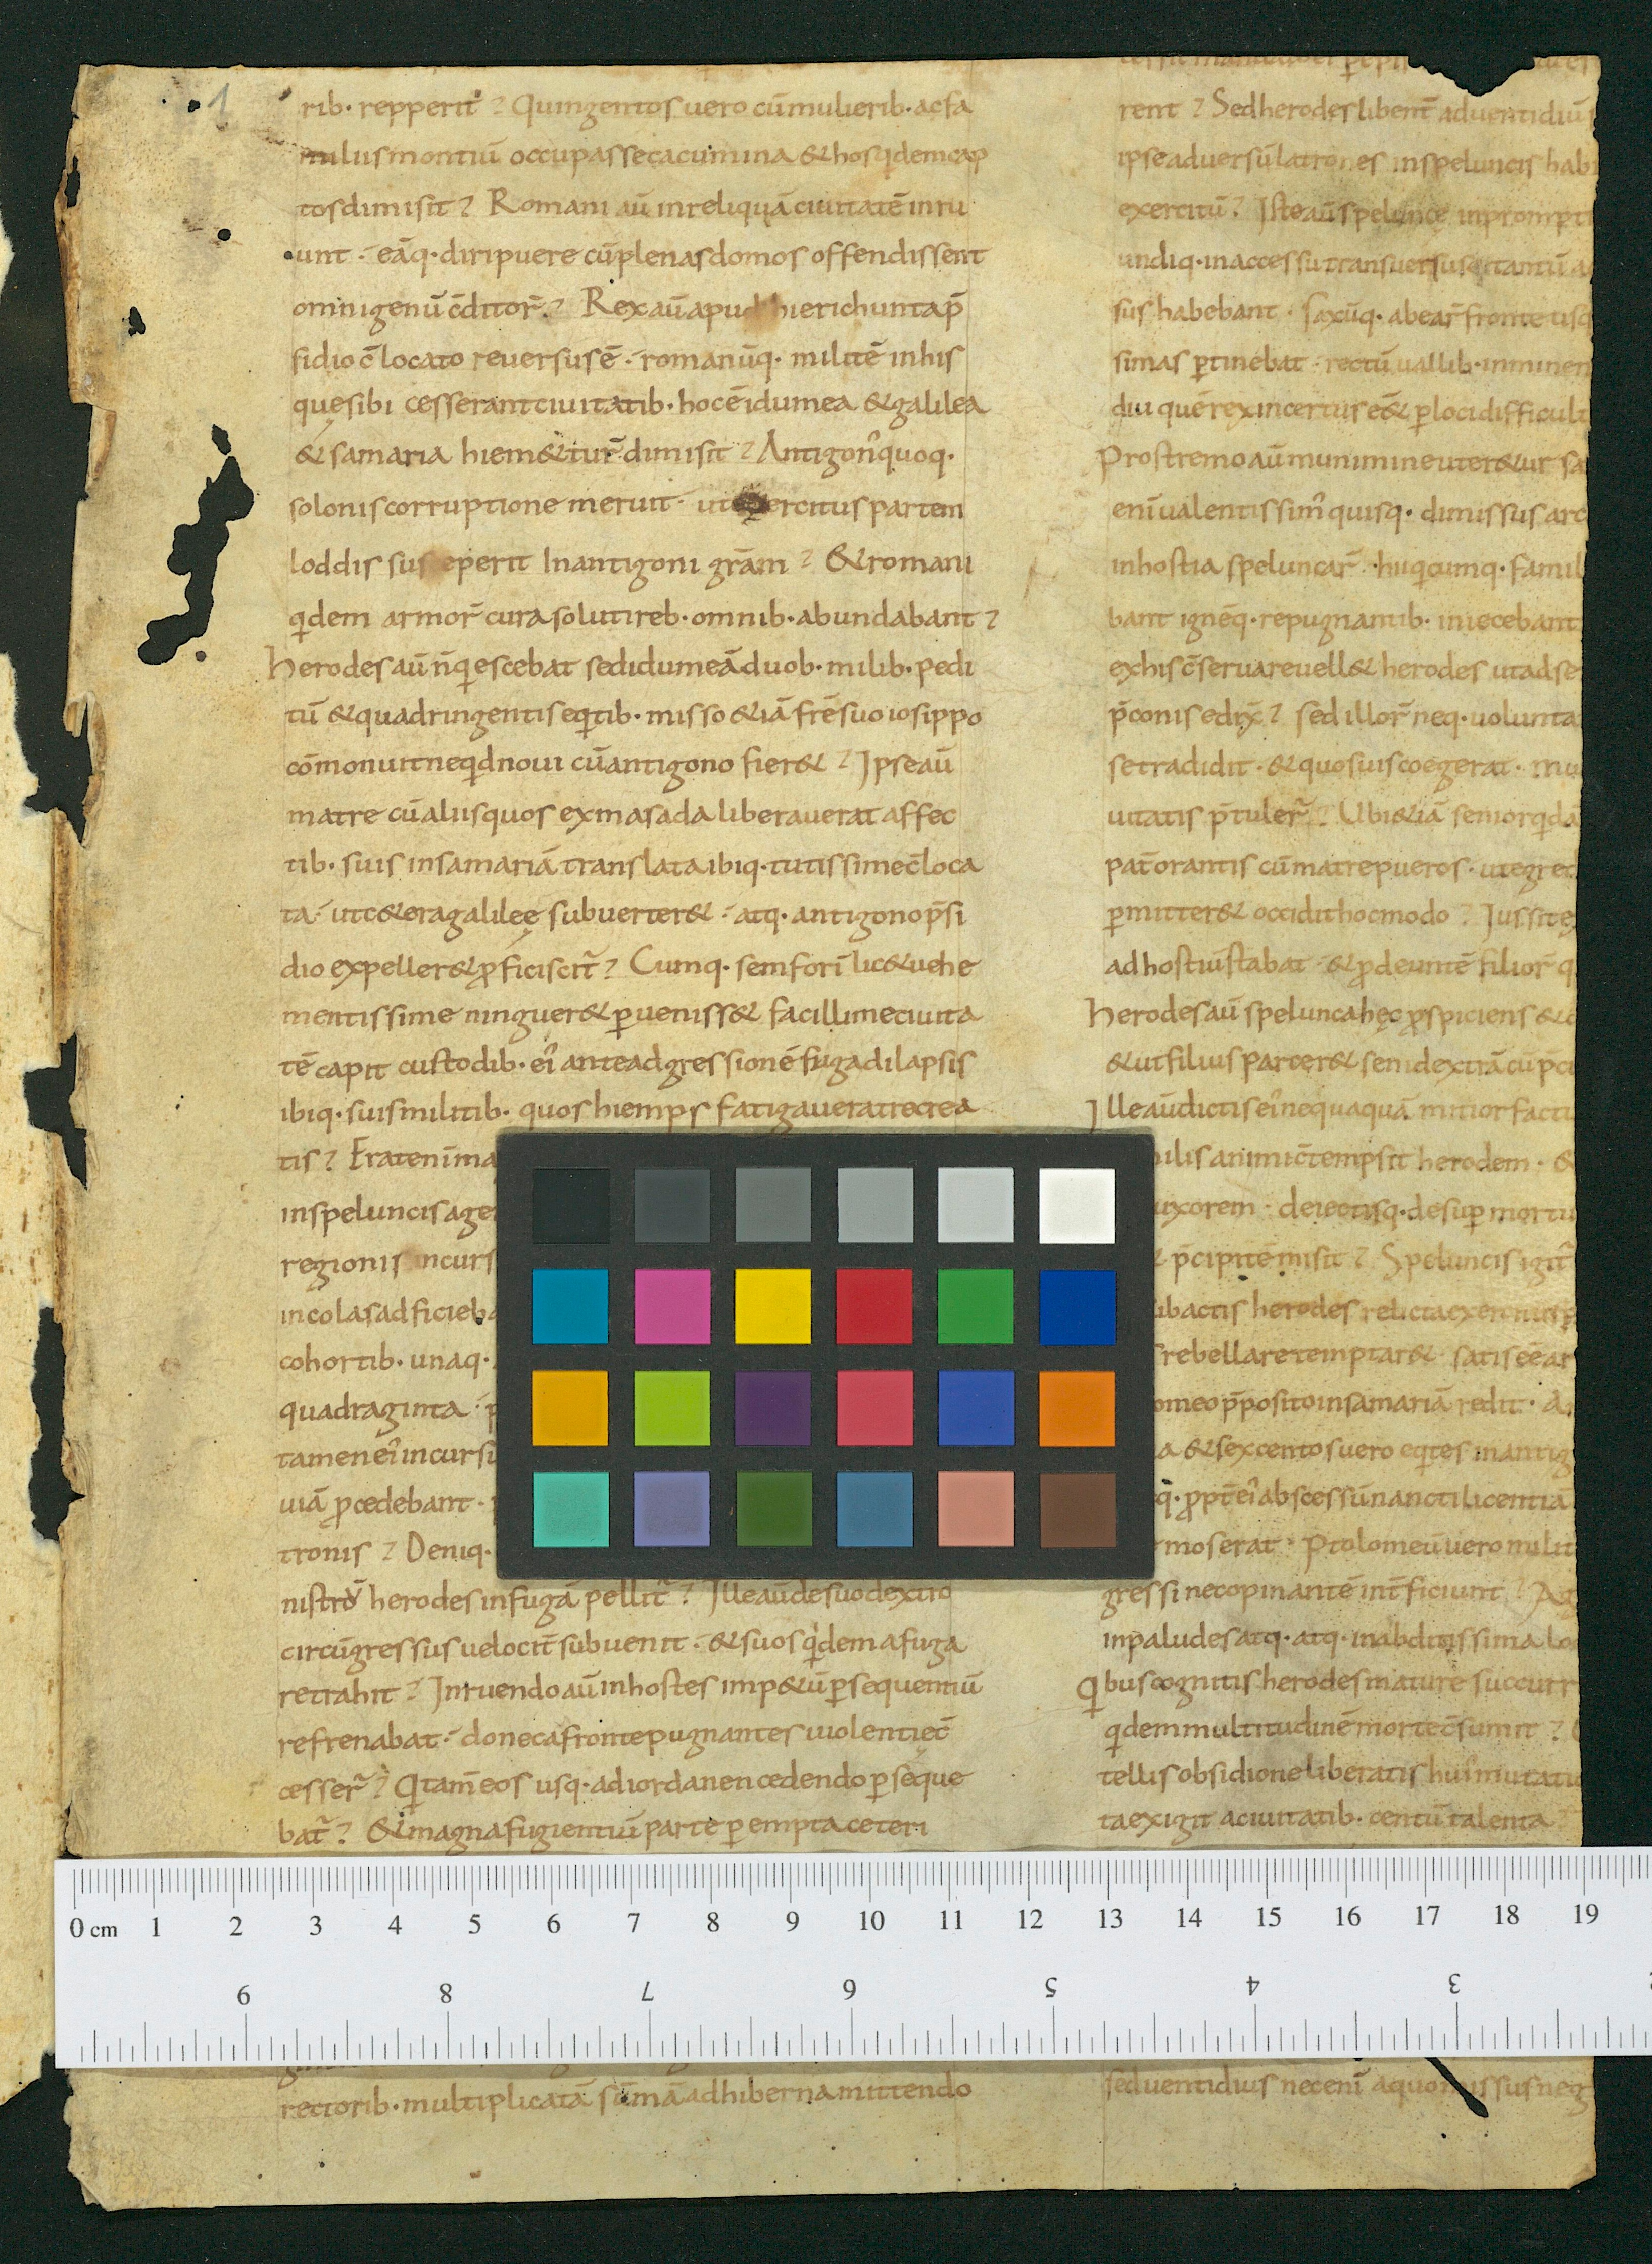 1
rib· repperit? Quingentos uero cū mulierib· ac fa
miliis montiū occupasse cacumina & hos qdem cap
tos dimisit? Romani aū in reliquā ciuitatē inru
unt· eāq· diripuere cū plenas domos offendissent
omnigenū c̄ditor̄? Rex aū apud hierichunta p̄
sidio c̄locato reuersus ē· romanūq· militē in his
que sibi cesserant ciuitatib· hoc ē idumea & galilea
& samaria hiem&tur̄ dimisit? Antigon᾿ quoq·
solonis corruptione meruit· ut ercitus partem
loddis sus eperit In antigoni grām? & romani
qdem armor̄ cura soluti reb· omnib· abundabant?
herodes aū n̄ qescebat sed idumeā duob· milib· pedi
tū & quadringentis eqtib· misso &iā frē suo iosippo
cōmonuit neqd noui cū antigono fier&? Ipse aū
matre cū aliis quos ex masada liberauerat affec
tib· suis in samariā translata ibiq· tutissime c̄loca
ta· ut c&era galileę subuerter&· atq· antigono p̄si
dio expeller& ꝓficiscit̄? Cumq· semforī lic& uehe
mentissime ninguer& ꝑueniss& facillime ciuita
tē capit custodib· ei᾿ ante adgressionē fuga dilapsis
ibiq· suis militib· quos hiemps fatigauerat recrea
tis? Erat enī ma
in speluncis age
regionis incurs
incolas adficieba
cohortib· unaq·
quadraginta· p
tamen ei᾿ incursi
uiā ꝓcedebant·
tronis? Deniq·
nistrū herodes in fugā pellit̄? Ille aū de suo dextro
circūgressus uelocit̄ subuenit· & suos qdem a fuga
retrahit? Inruendo aū in hostes imp&ū ꝑsequentiū
refrenabat· donec a fronte pugnantes uiolentię c̄
cesser̄? Qtam̄ eos usq· ad iordanen cedendo ꝑseque
bat̄? & magna fugientiū parte ꝑempta ceteri
rectorib· multiplicatā sūmā ad hiberna mittendo
rent? Sed herodes libent̄ ad uentidiū
ipse aduersū latrones in speluncis hab
exercitū? Iste aū spelunce in prompt
undiq· inaccessu transuersus tantū
sus habebant· saxūq· a bear̄ fronte usq
simas ꝑtinebat· rectū uallib· inminen
diu quē rex incertus ē & ꝑ loci difficul
Prostremo aū munimine uter&ur sa
enī ualentissim᾿ quisq· dimissus arc
in hostia speluncar̄· huq cumq· famil
bant ignēq· repugnantib· iniecebant
ex his c̄seruare uell& herodes ut ad se
p̄conis edix̄? sed illor̄ neq· uolunta
se tradidit· & quos uis coegerat· mu
uitatis p̄tuler̄? Ubi &iā senior qdā
pat̄ orantis cū matre pueros· ut egred
ꝑmitter& occidit hoc modo? Iussit e
ad hostiū stabat· & ꝓdeuntē filior̄ q
herodes aū spelunca hęc ꝓspiciens &
& ut filiis parcer& seni dextrā cū p̄c
Ille aū dictis ei᾿ nequaquā mitior fact
ilis animi c̄tempsit herodem·
uxorem· deiectisq· desuꝑ mortu
p̄cipitē misit? Speluncis igit̄
ubactis herodes relicta exercitus
rebellare temptar& satis eēar
omeo p̄posito in samariā redit·
a & sexcentos uero eqtes in antig
q· ꝓpt̄ ei᾿ abscessū nancti licentiā
mos erat· Ptolomeū uero milit
gressi necopinantē int̄ficiunt? Ag
in paludes atq· atq· in abditissima lo
Qbus cognitis herodes mature succurr
qdem multitudinē morte c̄sumit?
tellis obsidione liberatis hui᾿ mutati
ta exigit a ciuitatib· centū talenta
sed uentidius nec enī a quo missus neg
0 cm 1 2 3 4 5 6 7 8 9 10 11 12 13 14 15 16 17 18 19
9 8 7 6 5 4 3